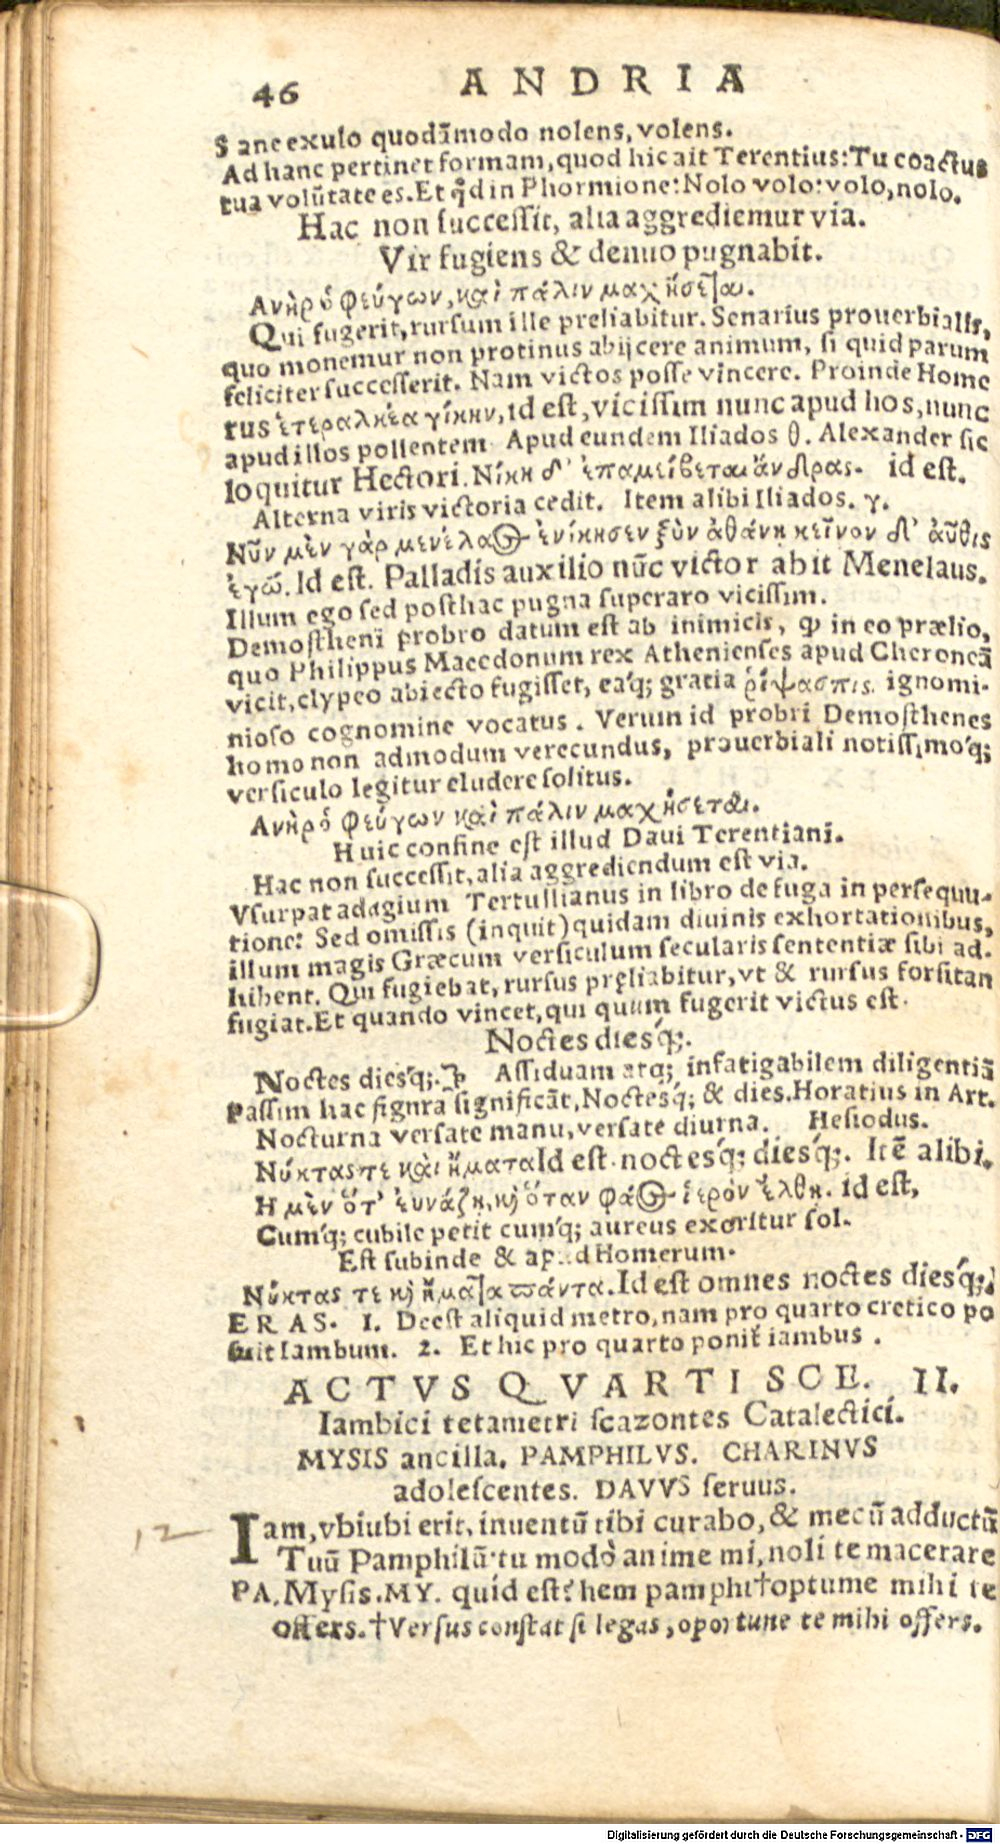 46 ANDRIA
Sane exulo quodāmodo nolens, volens.
Ad hanc pertinet formam, quod hic ait Terentius: Tu coactus
tua volūtate es. Et qđ in Phormione: Nolo volo: volo, nolo.
Hac non ſucceſſit, alia aggrediemur via.
Vir fugiens & denuo pugnabit.
Ανὴρ ὁ φεύγων, καὶ πάλιν μαχήσεται.
Qui fugerit, rurſum ille preliabitur. Senarius prouerbialis,
quo monemur non protinus abijcere animum, ſi quid parum
feliciter ſucceſſerit. Nam victos poſſe vincere. Proinde Home
rus ἑτεραλκέα γίκην, id eſt, viciſſim nunc apud hos, nunc
apud illos pollentem Apud eundem Iliados θ. Alexander ſic
loquitur Hectori. Νίκη δ' ἐπαμείβεται ἄνδρας. id eſt.
Alterna viris victoria cedit. Item alibi Iliados. γ.
Νῦν μὲν γὰρ μενέλαος ἐνίκησεν ξὺν ἀθάνῃ κεῖνον δ' αὖθις
ἐγώ. Id eſt. Palladis auxilio nūc victor abit Menelaus.
Illum ego ſed poſthac pugna ſuperaro viciſſim.
Demoſtheni probro datum eſt ab inimicis, ꝙ in eo prælio,
quo Philippus Macedonum rex Athenienſes apud Cheroneā
vicit, clypeo abiecto fugiſſet, eaq́; gratia ῥίψασπις. ignomi-
nioſo cognomine vocatus. Verum id probri Demoſthenes
homo non admodum verecundus, prouerbiali notiſſimoq́;
verſiculo legitur eludere ſolitus.
Ανὴρ ὁ φεύγων καὶ πάλιν μαχήσεται.
Huic confine eſt illud Daui Terentiani.
Hac non ſucceſſit, alia aggrediendum eſt via.
Vſurpat adagium Tertullianus in libro de fuga in perſequu-
tione: Sed omiſſis (inquit) quidam diuinis exhortationibus,
illum magis Græcum verſiculum ſecularis ſententiæ ſibi ad-
hibent. Qui fugiebat, rurſus pręliabitur, vt & rurſus forſitan
fugiat. Et quando vincet, qui quum fugerit victus eſt.
Noctes diesq́;.
Noctes diesq́;. Aſſiduam atq; infatigabilem diligentiā
Paſſim hac figura ſignificāt, Noctesq́; & dies. Horatius in Art.
Nocturna verſate manu, verſate diurna. Heſiodus.
Νύκτας τε καὶ ἤματα Id eſt. noctesq́; diesq́;. Itē alibi.
Η μὲν ὅτ' ἐυνάζῃ, κ̀ ὅταν φάος ἱερὸν ἔλθῃ. id eſt,
Cumq́; cubile petit cumq́; aureus exoritur ſol.
Eſt ſubinde & apud Homerum.
Νύκτας τε κ̀ ἤματα πάντα. Id eſt omnes noctes diesq́;.
ERAS. 1. Deeſt aliquid metro, nam pro quarto cretico po
ſuit Iambum. 2. Et hic pro quarto ponit́ iambus.
ACTVS QVARTI SCE. II.
Iambici tetametri ſcazontes Catalectici.
MYSIS ancilla. PAMPHILVS. CHARINVS
adoleſcentes. DAVVS ſeruus.
12
Iam, vbiubi erit, inuentū tibi curabo, & mecū adductū
Tuū Pamphilū: tu modò anime mi, noli te macerare
PA. Myſis. MY. quid eſt? hem pamphi†optume mihi te
offers. †Verſus conſtat ſi legas, oportune te mihi offers.
Digitalisierung gefördert durch die Deutsche Forschungsgemeinschaft - DFG